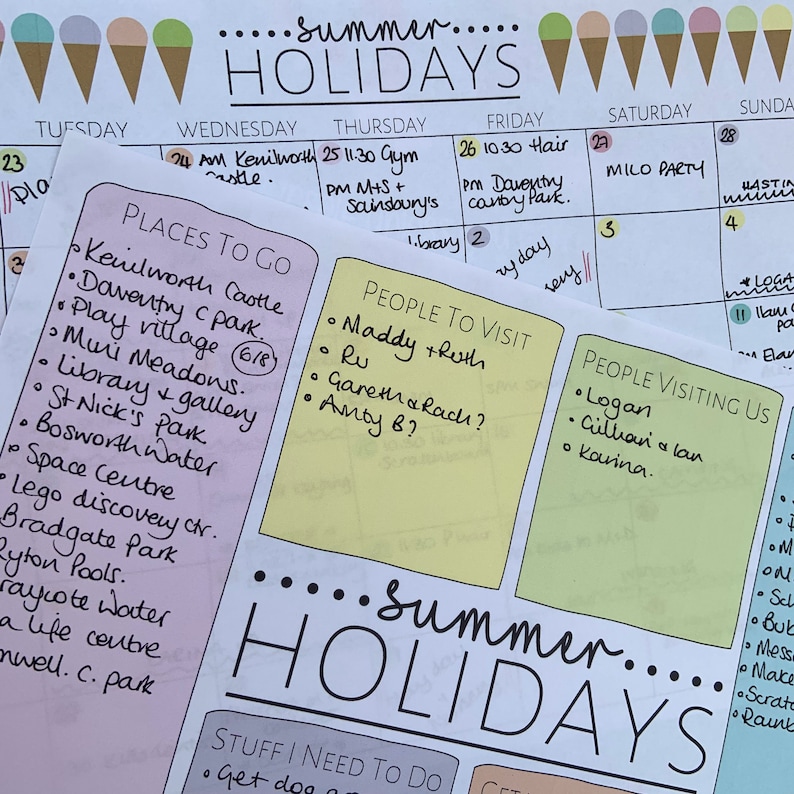 summer
HOLIDAYS
TUESDAY WEDNESDAY THURSDAY FRIDAY SATURDAY SUNDA
23 24 AM Kenilworth 25 11.30 Gym 26 10.30 Hair 27 28
Castle. PM M+S + PM Daventry MILO PARTY
Sainsbury's country Park. HASTIN
library 2 3 4
day
* LOGA
11 11am
PM Elan
PLACES TO GO
• Kenilworth Castle
• Daventry C park.
• Play village 6/8
• Mini Meadows.
• Library & gallery
• St Nick's Park
• Bosworth Water
• Space Centre
• Lego discovery ctr.
Bradgate Park
Ryton Pools.
raycote Water
a life centre
mwell. C. park
PEOPLE TO VISIT
• Maddy + Ruth
• Ru
• Gareth & Rach?
• Anty B?
PEOPLE VISITING US
• Logan
• Gillian & Ian
• Karina.
summer
HOLIDAYS
STUFF I NEED TO DO
• Get dog
• M
• M
• Sch
• Bub
• Mess
• Make
• Scrat
• Rainb